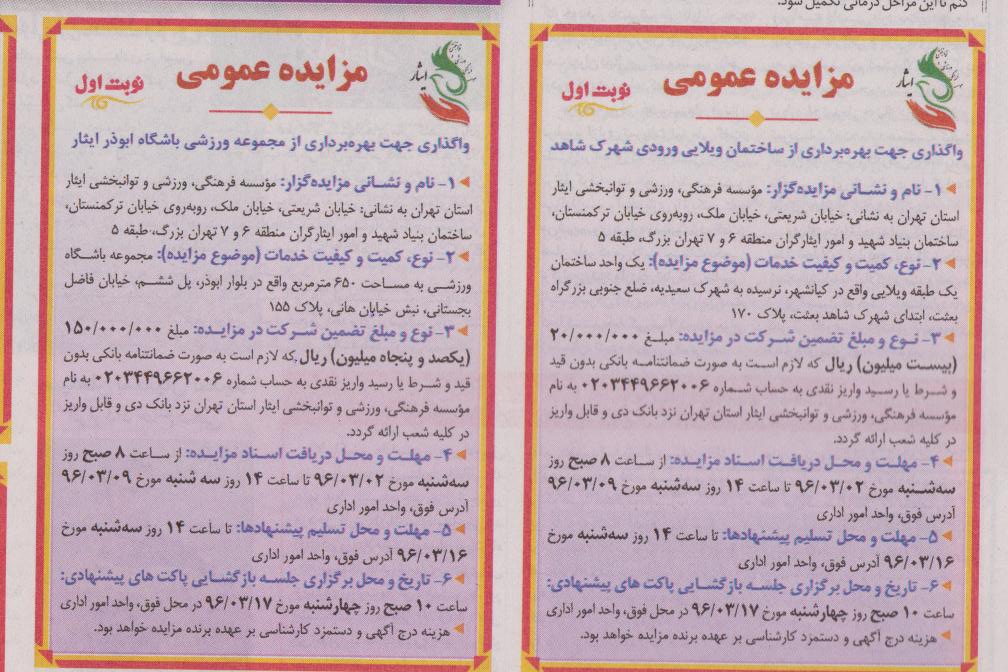 کنم تا این مراحل درمانی تکمیل شود.
ایثار
مزایده عمومی
نوبت اول
واگذاری جهت بهره‌برداری از ساختمان ویلایی ورودی شهرک شاهد
۱- نام و نشانی مزایده‌گزار: مؤسسه فرهنگی، ورزشی و توانبخشی ایثار
استان تهران به نشانی: خیابان شریعتی، خیابان ملک، روبه‌روی خیابان ترکمنستان،
ساختمان بنیاد شهید و امور ایثارگران منطقه ۶ و ۷ تهران بزرگ، طبقه ۵
۲- نوع، کمیت و کیفیت خدمات (موضوع مزایده): یک واحد ساختمان
یک طبقه ویلایی واقع در کیانشهر، نرسیده به شهرک سعیدیه، ضلع جنوبی بزرگراه
بعثت، ابتدای شهرک شاهد بعثت، پلاک ۱۷۰
۳- نوع و مبلغ تضمین شرکت در مزایده: مبلغ ۲۰/۰۰۰/۰۰۰
(بیست میلیون) ریال که لازم است به صورت ضمانتنامه بانکی بدون قید
و شرط یا رسید واریز نقدی به حساب شماره ۰۲۰۳۴۴۹۶۶۲۰۰۶ به نام
مؤسسه فرهنگی، ورزشی و توانبخشی ایثار استان تهران نزد بانک دی و قابل واریز
در کلیه شعب ارائه گردد.
۴- مهلت و محل دریافت اسناد مزایده: از ساعت ۸ صبح روز
سه‌شنبه مورخ ۹۶/۰۳/۰۲ تا ساعت ۱۴ روز سه‌شنبه مورخ ۹۶/۰۳/۰۹
آدرس فوق، واحد امور اداری
۵- مهلت و محل تسلیم پیشنهادها: تا ساعت ۱۴ روز سه‌شنبه مورخ
۹۶/۰۳/۱۶ آدرس فوق، واحد امور اداری
۶- تاریخ و محل برگزاری جلسه بازگشایی پاکت های پیشنهادی:
ساعت ۱۰ صبح روز چهارشنبه مورخ ۹۶/۰۳/۱۷ در محل فوق، واحد امور اداری
هزینه درج آگهی و دستمزد کارشناسی بر عهده برنده مزایده خواهد بود.
ایثار
مزایده عمومی
نوبت اول
واگذاری جهت بهره‌برداری از مجموعه ورزشی باشگاه ابوذر ایثار
۱- نام و نشانی مزایده‌گزار: مؤسسه فرهنگی، ورزشی و توانبخشی ایثار
استان تهران به نشانی: خیابان شریعتی، خیابان ملک، روبه‌روی خیابان ترکمنستان،
ساختمان بنیاد شهید و امور ایثارگران منطقه ۶ و ۷ تهران بزرگ، طبقه ۵
۲- نوع، کمیت و کیفیت خدمات (موضوع مزایده): مجموعه باشگاه
ورزشی به مساحت ۶۵۰ مترمربع واقع در بلوار ابوذر، پل ششم، خیابان فاضل
بجستانی، نبش خیابان هانی، پلاک ۱۵۵
۳- نوع و مبلغ تضمین شرکت در مزایده: مبلغ ۱۵۰/۰۰۰/۰۰۰
(یکصد و پنجاه میلیون) ریال که لازم است به صورت ضمانتنامه بانکی بدون
قید و شرط یا رسید واریز نقدی به حساب شماره ۰۲۰۳۴۴۹۶۶۲۰۰۶ به نام
مؤسسه فرهنگی، ورزشی و توانبخشی ایثار استان تهران نزد بانک دی و قابل واریز
در کلیه شعب ارائه گردد.
۴- مهلت و محل دریافت اسناد مزایده: از ساعت ۸ صبح روز
سه‌شنبه مورخ ۹۶/۰۳/۰۲ تا ساعت ۱۴ روز سه شنبه مورخ ۹۶/۰۳/۰۹
آدرس فوق، واحد امور اداری
۵- مهلت و محل تسلیم پیشنهادها: تا ساعت ۱۴ روز سه‌شنبه مورخ
۹۶/۰۳/۱۶ آدرس فوق، واحد امور اداری
۶- تاریخ و محل برگزاری جلسه بازگشایی پاکت های پیشنهادی:
ساعت ۱۰ صبح روز چهارشنبه مورخ ۹۶/۰۳/۱۷ در محل فوق، واحد امور اداری
هزینه درج آگهی و دستمزد کارشناسی بر عهده برنده مزایده خواهد بود.